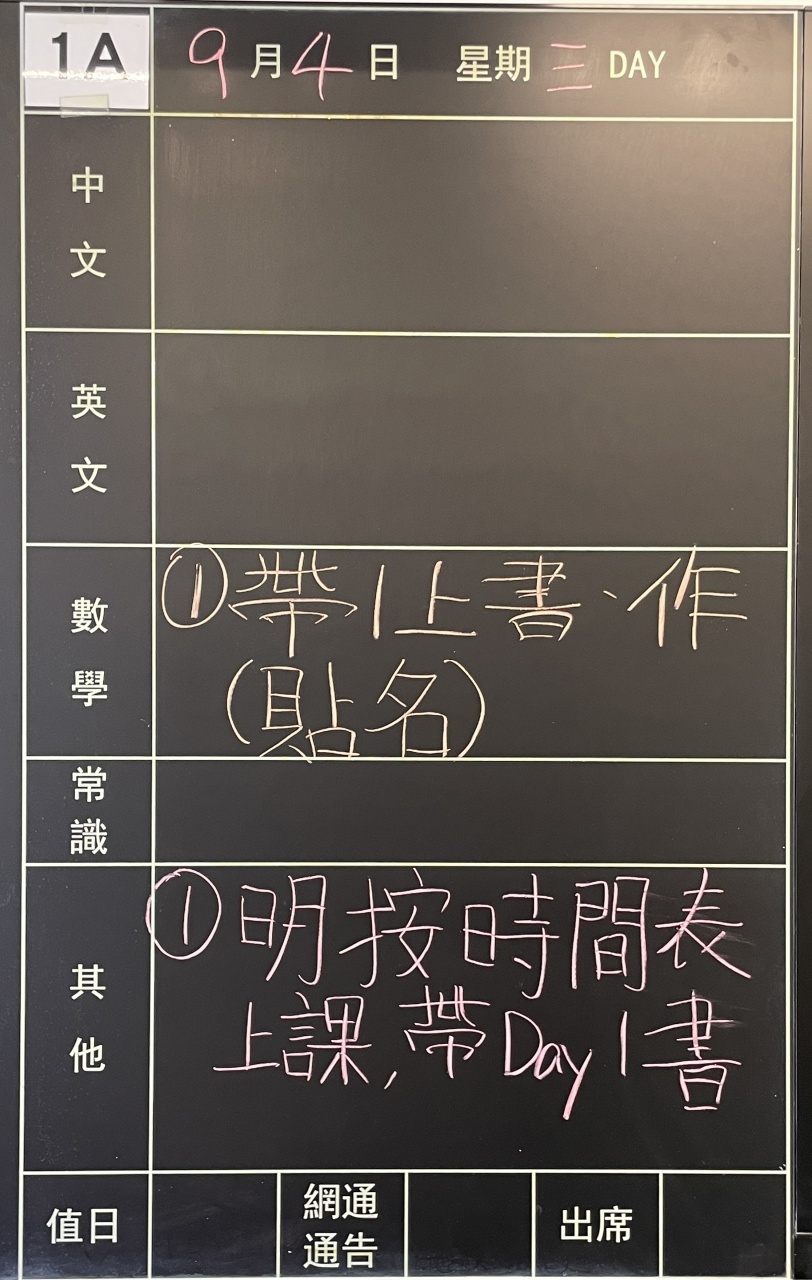 1A 9月4日 星期三 DAY
中文
英文
數學
①帶1上書、作
(貼名)
常識
其他
①明按時間表
上課,帶Day 1書
值日
網通通告
出席